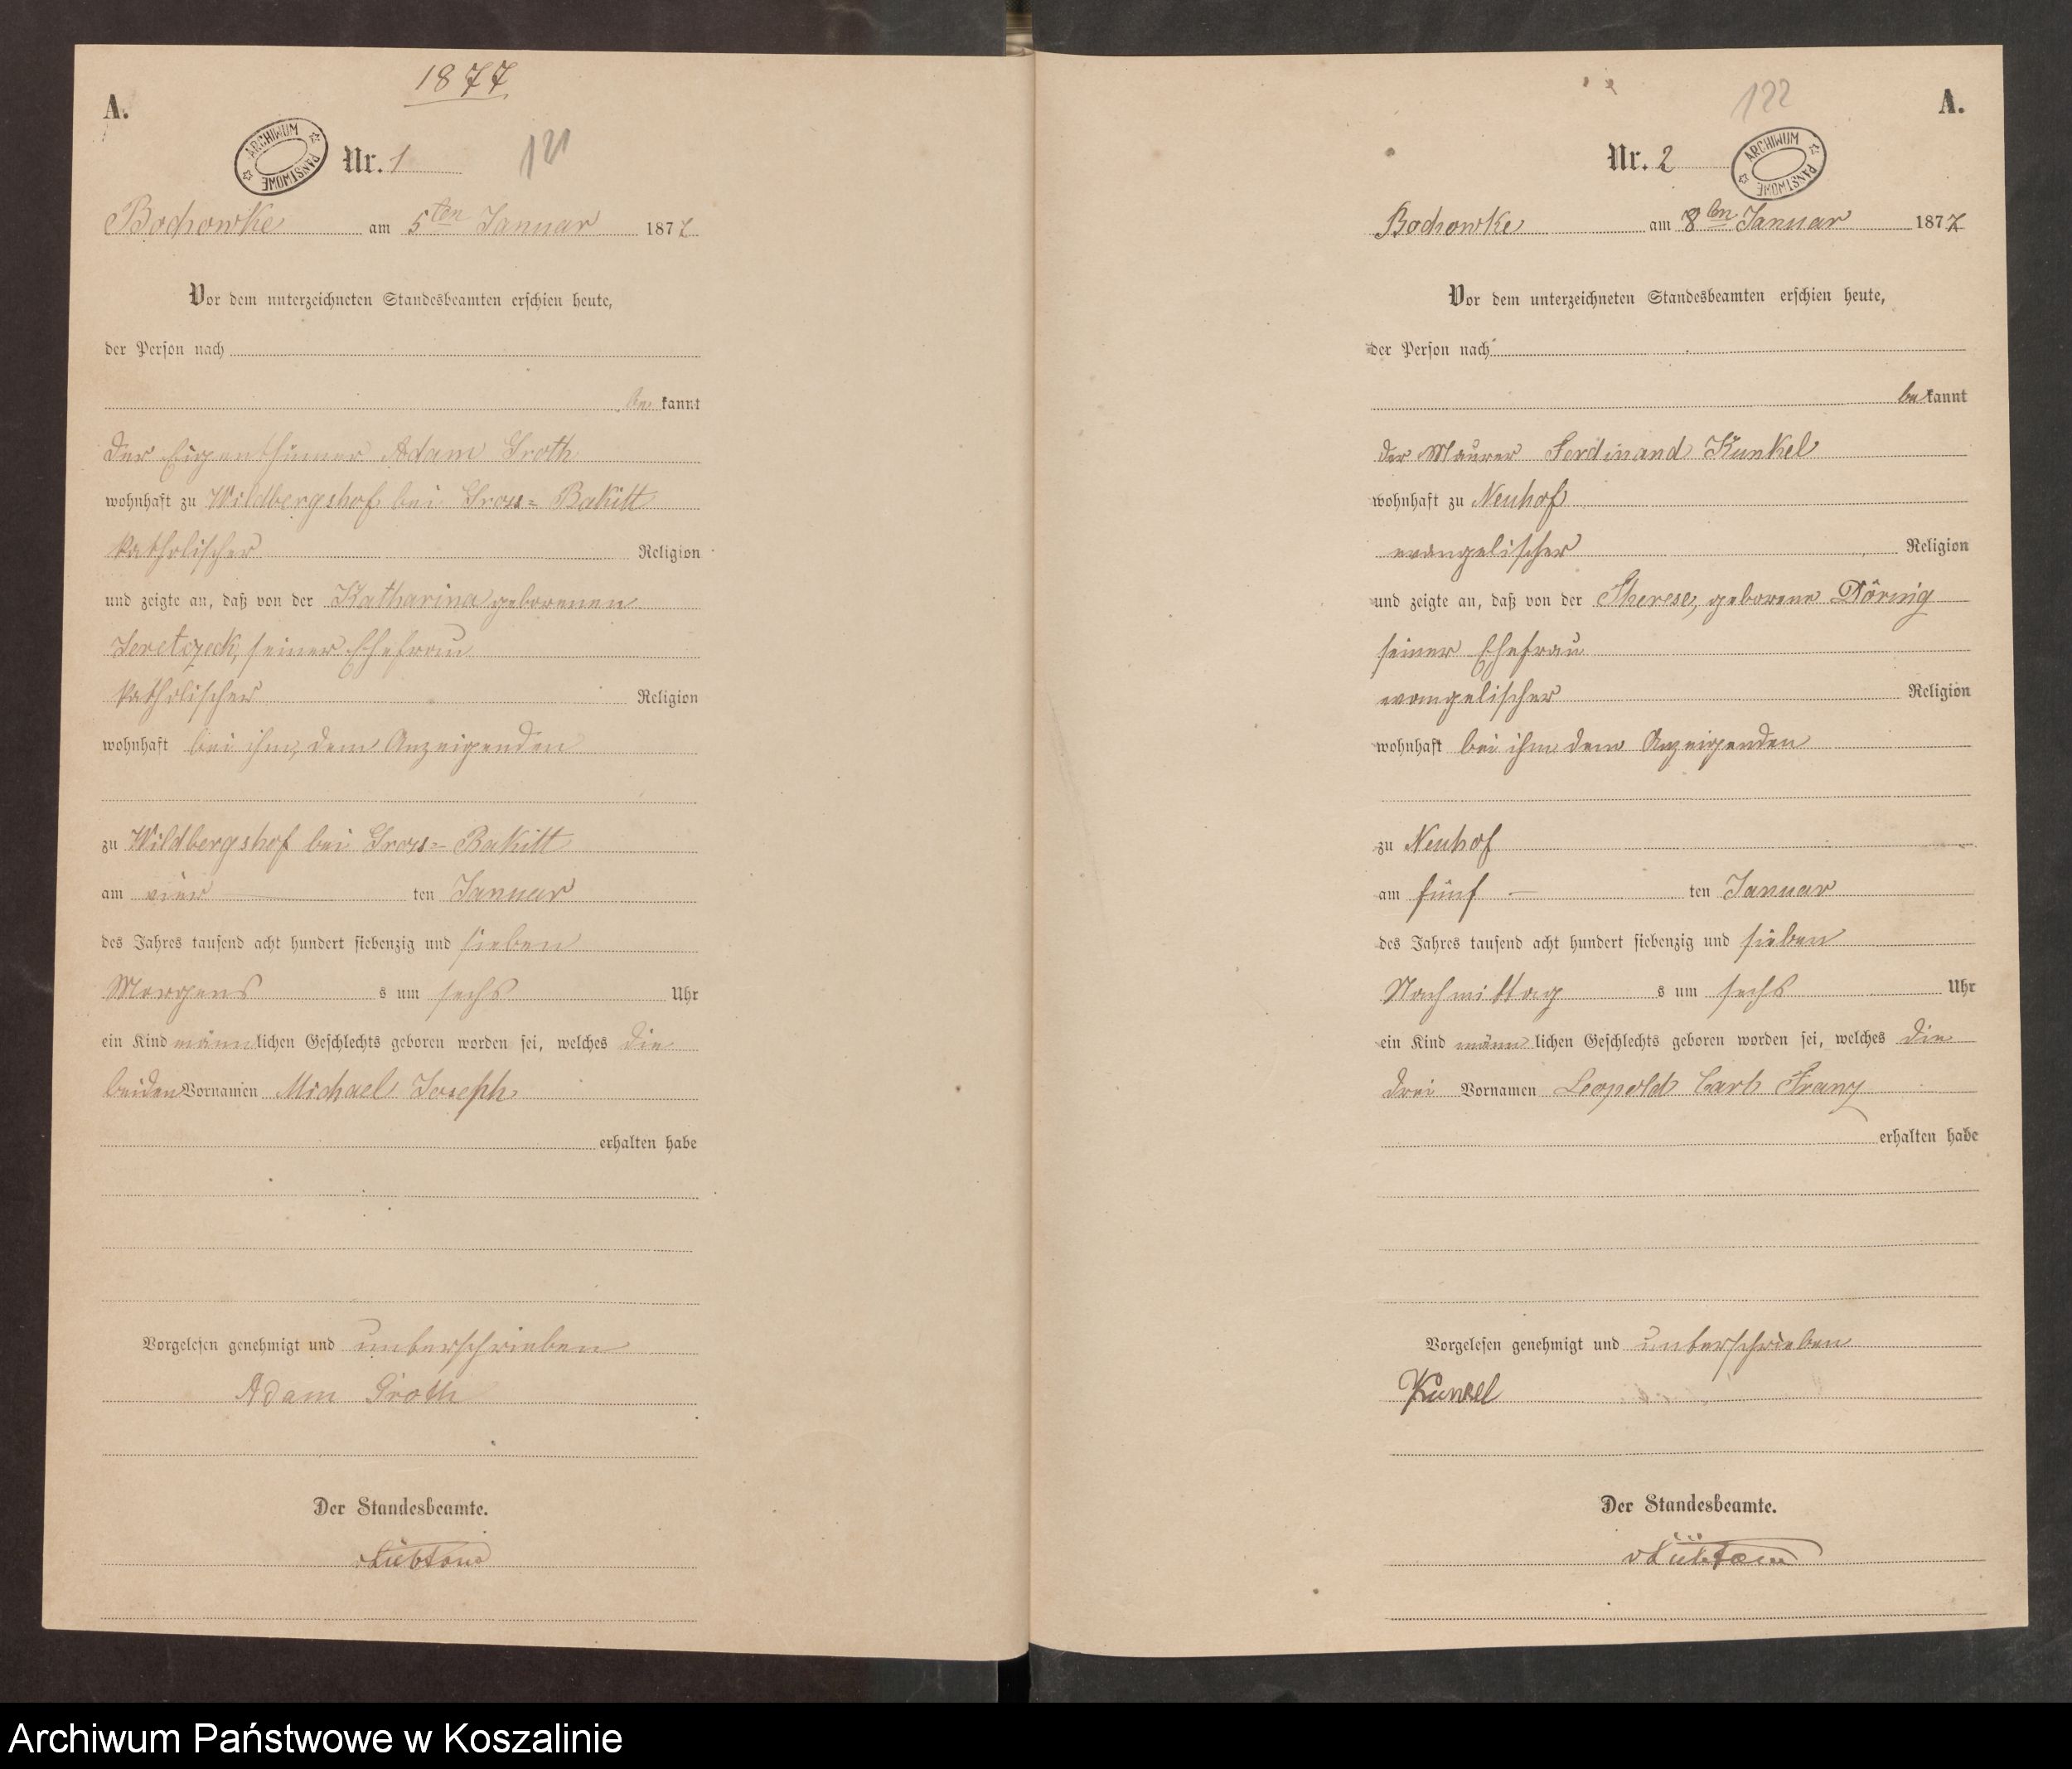 1877
A.
ARCHIWUM PAŃSTWOWE
Nr. 1
121
Bochowke am 5ten Januar 1877
Vor dem unterzeichneten Standesbeamten erschien heute,
der Person nach
be kannt
der Eigenthümer Adam Groth
wohnhaft zu Wildbergshof bei Gross= Rakitt
katholischer Religion
und zeigte an, daß von der Katharina geborenen
Jeretczeck, seiner Ehefrau
katholischer Religion
wohnhaft bei ihm, dem Anzeigenden
zu Wildbergshof bei Gross= Rakitt
am vier ten Januar
des Jahres tausend acht hundert siebenzig und sieben
Morgens s um sechs Uhr
ein Kind männlichen Geschlechts geboren worden sei, welches die
beiden Vornamen Michael Joseph
erhalten habe
Vorgelesen genehmigt und unterschrieben
Adam Groth
Der Standesbeamte.
vLübtow
122
A.
Nr. 2
ARCHIWUM PAŃSTWOWE
Bochowke am 8ten Januar 1877
Vor dem unterzeichneten Standesbeamten erschien heute,
der Person nach
be kannt
der Maurer Ferdinand Kunkel
wohnhaft zu Neuhof
evangelischer Religion
und zeigte an, daß von der Therese, geborene Döring
seiner Ehefrau
evangelischer Religion
wohnhaft bei ihm dem Anzeigenden
zu Neuhof
am fünf ten Januar
des Jahres tausend acht hundert siebenzig und sieben
Nachmittag s um sechs Uhr
ein Kind männ lichen Geschlechts geboren worden sei, welches die
drei Vornamen Leopold Carl Franz
erhalten habe
Vorgelesen genehmigt und unterschrieben
Kunkel
Der Standesbeamte.
vLübtow
Archiwum Państwowe w Koszalinie